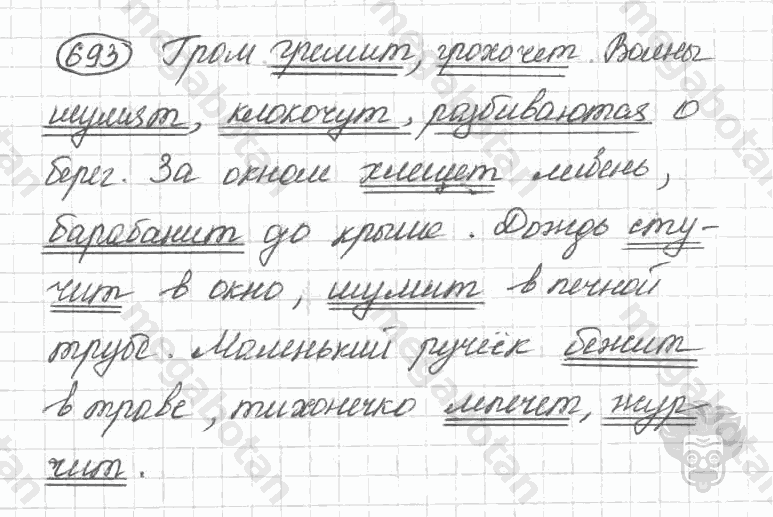 693 Гром гремит, грохочет. Волны
шумят, клокочут, разбиваются о
берег. За окном хлещет ливень,
барабанит по крыше. Дождь сту-
чит в окно, шумит в печной
трубе. Маленький ручеёк бежит
в траве, тихонечко лепечет, жур-
чит.
megabotan